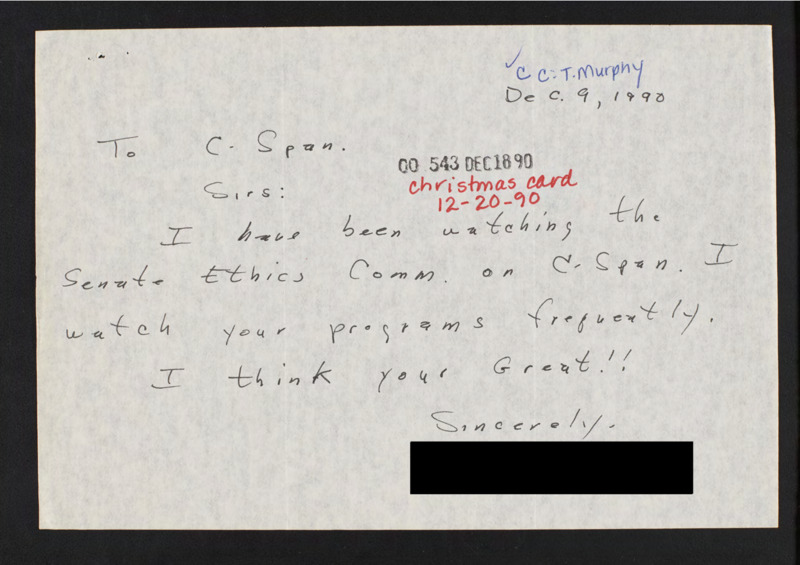 ✓ C C: T. Murphy
Dec. 9, 1990
To C-Span.
00 543 DEC18 90
Sirs:
christmas card
12-20-90
I have been watching the
Senate Ethics Comm. on C-Span. I
watch your programs frequently.
I think your Great!!
Sincerely.